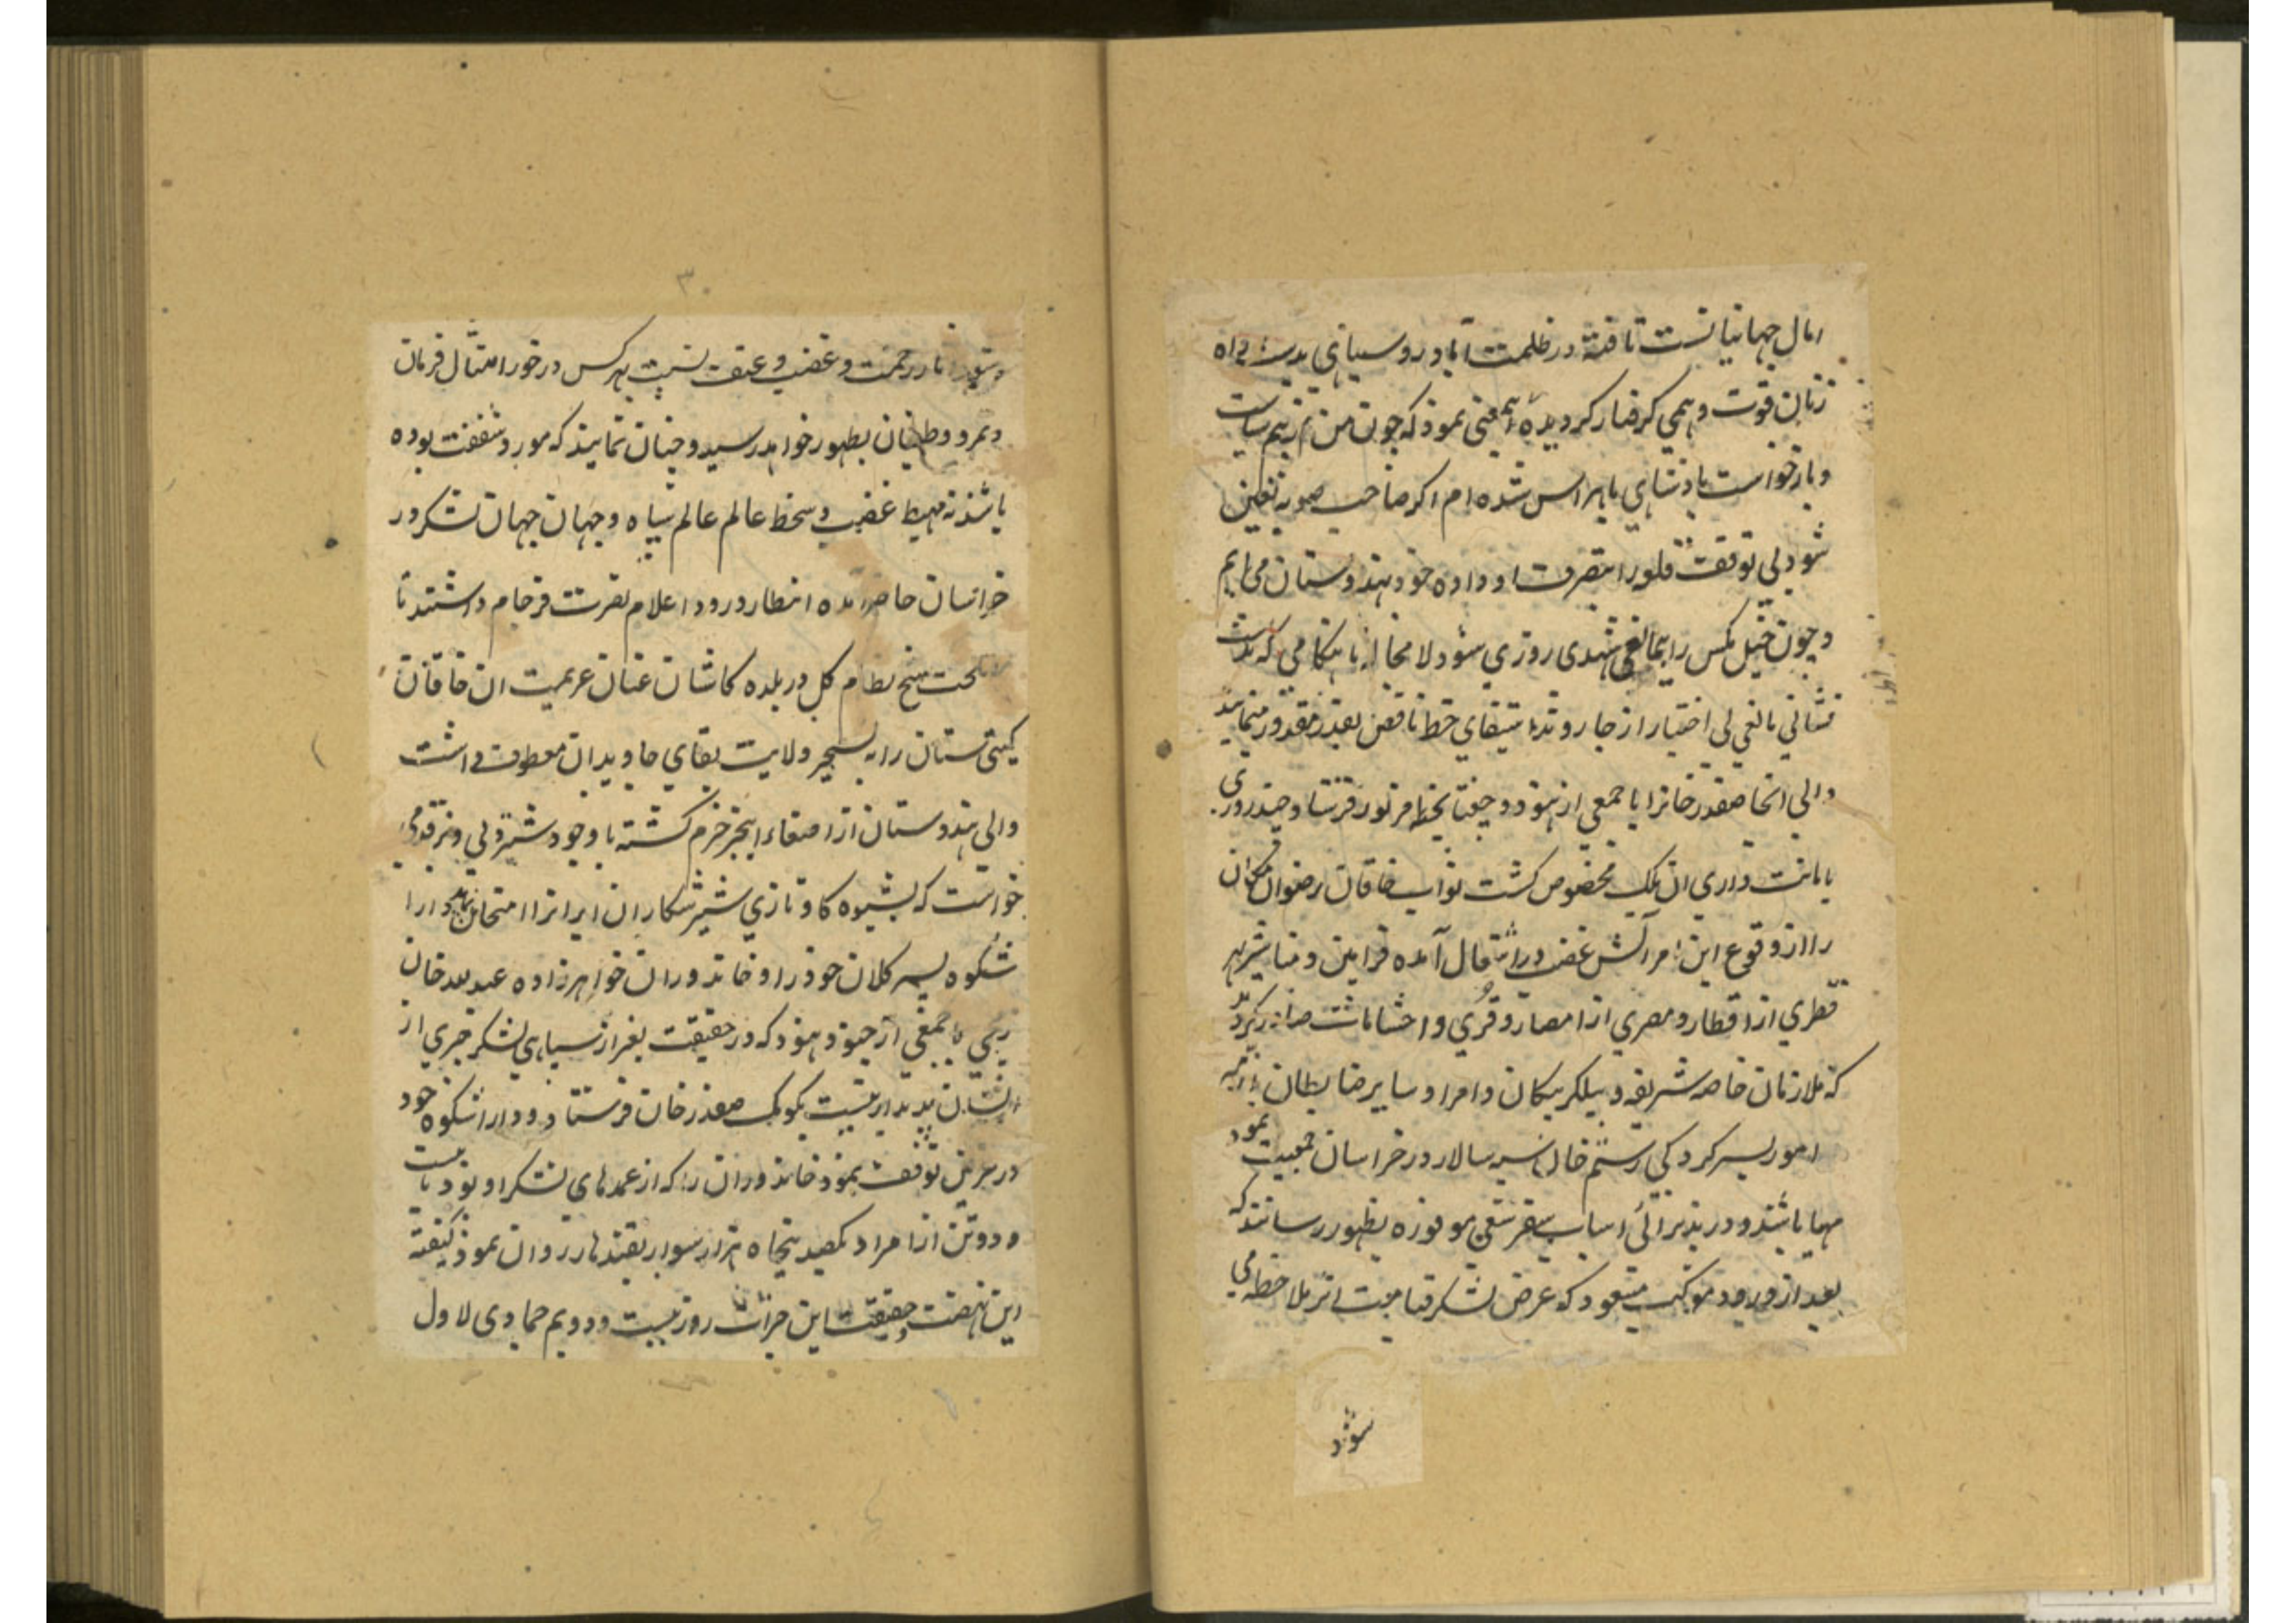 امال جهانیانست تافته در ظلمت آباد روسیاهی بدست
زنان قوت وهمی کرفتار کردیده نمود که چون من از بیم سیاست
و بازخواست پادشاهی باهراس شده ام اکر صاحب صوبه تعین
شود بی توقف قلعه را بتصرف او داده خود بهندوستان می ایم
و چون خیل مکس را شهدی روزی شود لا محاله با هنکامی که
نشانی یا لغی بی اختیار از جا روند استیفای حظ ناقص بقدر مقدور مینمایند
والی انجا صفدر خانرا با جمعی از هنود و جغتا بخطه فرستاد و چند روزی
بامانت داری ان ملک مخصوص کشت نواب خاقان رضوان مکان
را از وقوع این امر آتش غضب در اشتعال آمده فرامین و مناشیر بهر
قطری از اقطار و مصری از امصار و قری و احشامات صادر کردید
که ملازمان خاصه شریفه و بیلکربیکان و امرا و سایر ضابطان
امور بسرکردکی رستم خان سپه سالار در خراسان جمعیت نمود
مهیا باشند و در پذیرائی اسباب سفر سعی موفوره بظهور رسانند که
بعد از ورود موکب مسعود که عرض لشکر قیامت اثر ملاحظه می
شود
۳۰
رحمت و غضب و عنف نسبت بهر کس در خور امتثال فرمان
و تمرد و طغیان بظهور خواهد رسید و چنان نمایند که مورد شفقت بوده
باشند نه مهبط غضب و سخط عالم عالم سپاه و جهان جهان لشکر در
خراسان حاضر آمده انتظار ورود اعلام نصرت فرجام داشتند تا
نظام کل در بلده کاشان عنان عزیمت ان خاقان
کیتی ستان را به تسخیر ولایت بقای جاویدان معطوف داشت
والی هندوستان از اصغاء این خبر خرم کشته با وجود شیردلی و
خواست که بشیوه کاو تازی شیر شکاران ایرانرا امتحان نماید دارا
شکوه پسر کلان خود را و خاندوران خواهرزاده عبد الله خان
زخمی با جمعی از جنود هنود که در حقیقت بغیر از سیاهی لشکر خبری از
ایشان پدیدار نیست بکومک صفدر خان فرستاد و داراشکوه خود
در غزنین توقف نمود خاندوران را که از عمدهای لشکر او بود با بیست
و دو تن از امرا و یکصد پنجاه هزار سوار بقندهار روان نمود کیفیت
این نهضت و حقیقت این جرات روز بیست و دویم جمادی الاول